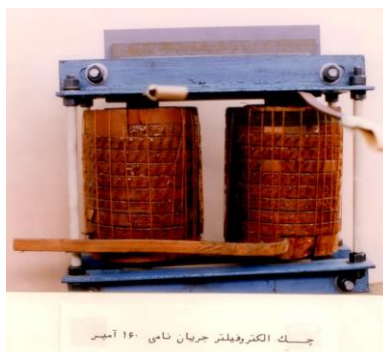 چـك الكتروفيلتر جريان نامى ۱۶۰ آمپر